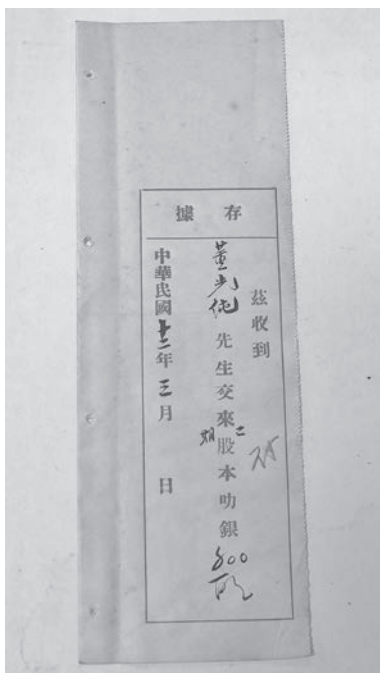 存據
茲收到
董光
先生交來股本叻銀
二
800
中華民國十二年三月 日